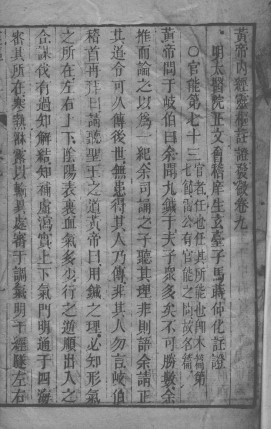 黃帝內經靈樞註證發微卷九
明太醫院正文會稽庠生玄臺子馬蒔仲化註證
○官能第七十三
官者任也任其所能也內本篇第
七節雷公有官能之問故名篇
黃帝問于岐伯曰余聞九鍼于夫子衆多矣不可勝數余
推而論之以爲一紀余司誦之子聽其理非則語余請正
其道令可久傳後世無患得其人乃傳非其人勿言岐伯
稽首再拜曰請聽聖王之道黃帝曰用鍼之理必知形氣
之所在左右上下陰陽表裏血氣多少行之逆順出入之
合謀伐有過知解結知補虛瀉實上下氣門明通于四海
審其所在寒熱淋露以輸異處審于調氣明于經隧左右